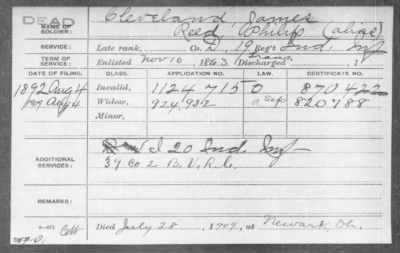 DEAD
NAME OF SOLDIER: Cleveland James
Reed, Philip (alias)
SERVICE: Late rank, Co. 19 Reg't Ind. Inf
TERM OF SERVICE: Enlisted Nov 10, 1863 Discharged , 1
DATE OF FILING. CLASS. APPLICATION NO. LAW. CERTIFICATE NO.
1892 Aug 4 Invalid, 1124715 870422
1909 Aug 4 Widow, 924,932 820788
Minor,
ADDITIONAL SERVICES: I 20 Ind. Inf
37 Co 2 B. V. R. C.
REMARKS:
Died July 28, 1909, at Newark, Oh.